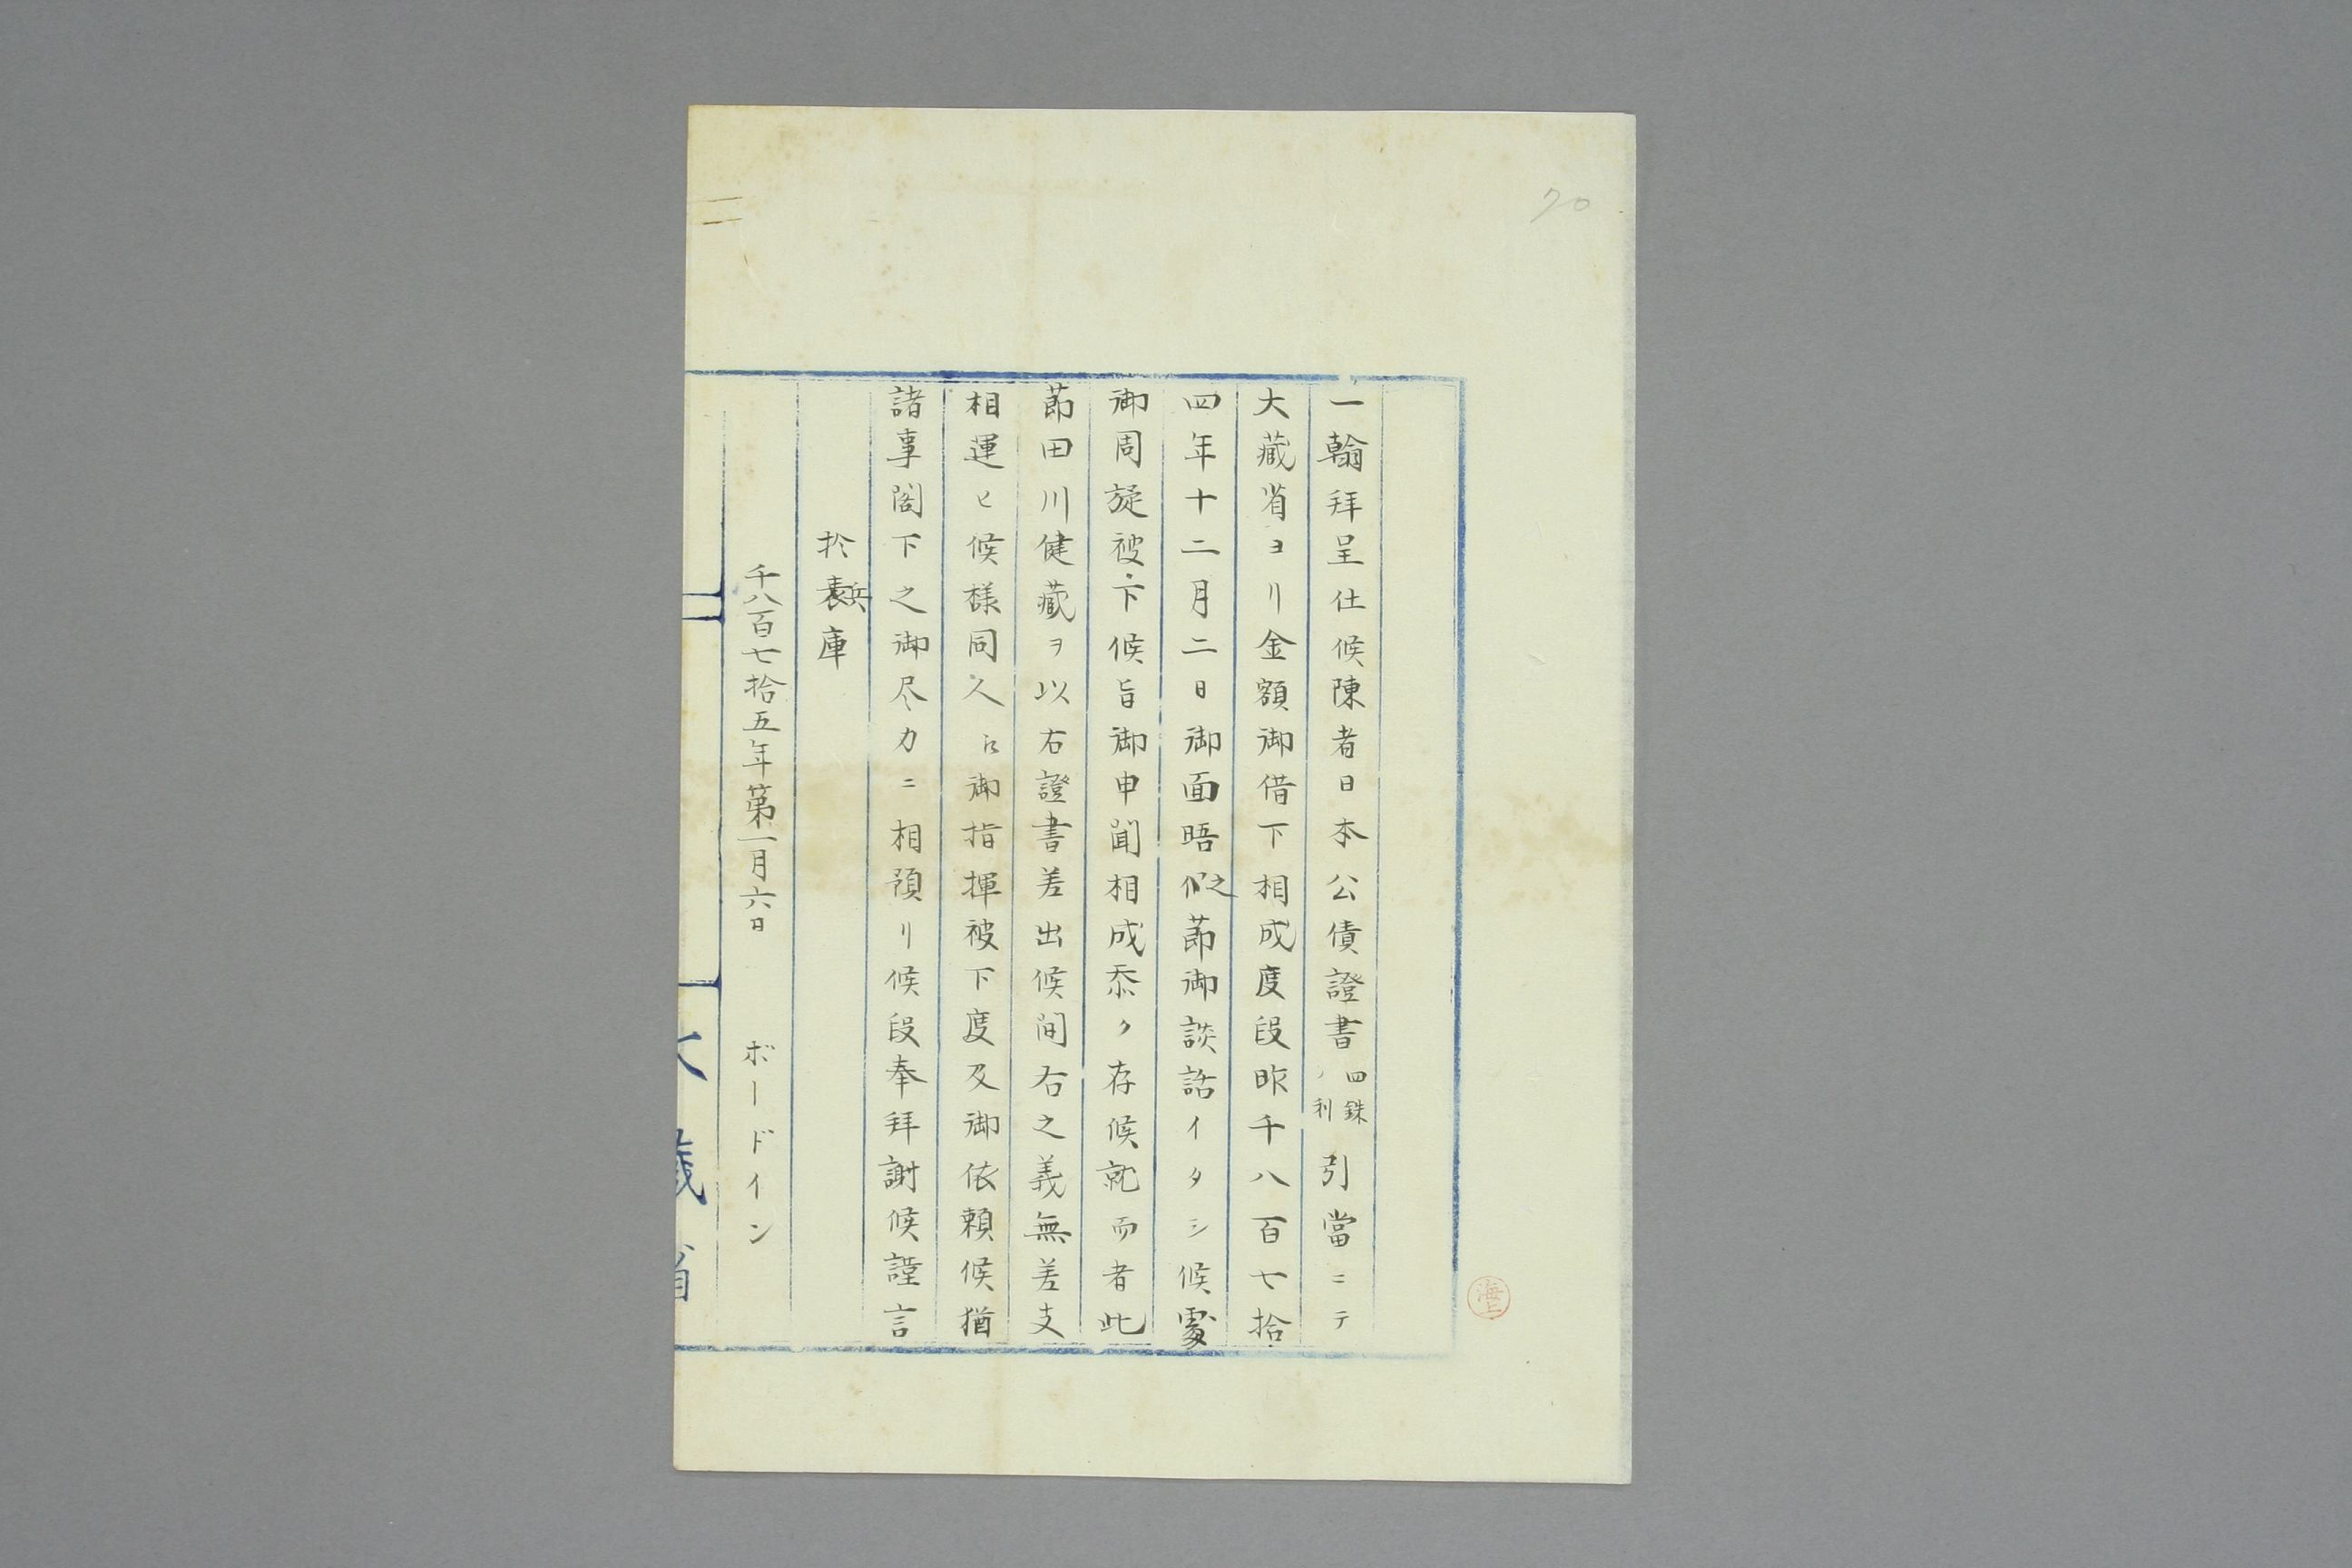 70
一翰拜呈仕候陳者日本公債證書四銖ノ利引當ニテ
大藏省ヨリ金額御借下相成度段昨千八百七拾
四年十二月二日御面晤之節御談話イタシ候處
御周旋被下候旨御申聞相成忝ク存候就而者此
節田川健藏ヲ以右證書差出候间右之義無差支
相運ヒ候様同人江御指揮被下度及御依頼候猶
諸事閣下之御尽力ニ相預リ候段奉拜謝候謹言
於兵庫
千八百七拾五年第一月六日 ボードイン
大藏省
海上